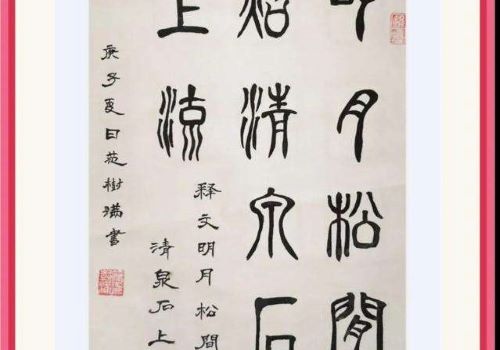 明月松間
照清泉石
上流
釋文明月松間
清泉石上
庚子夏日范樹滿書